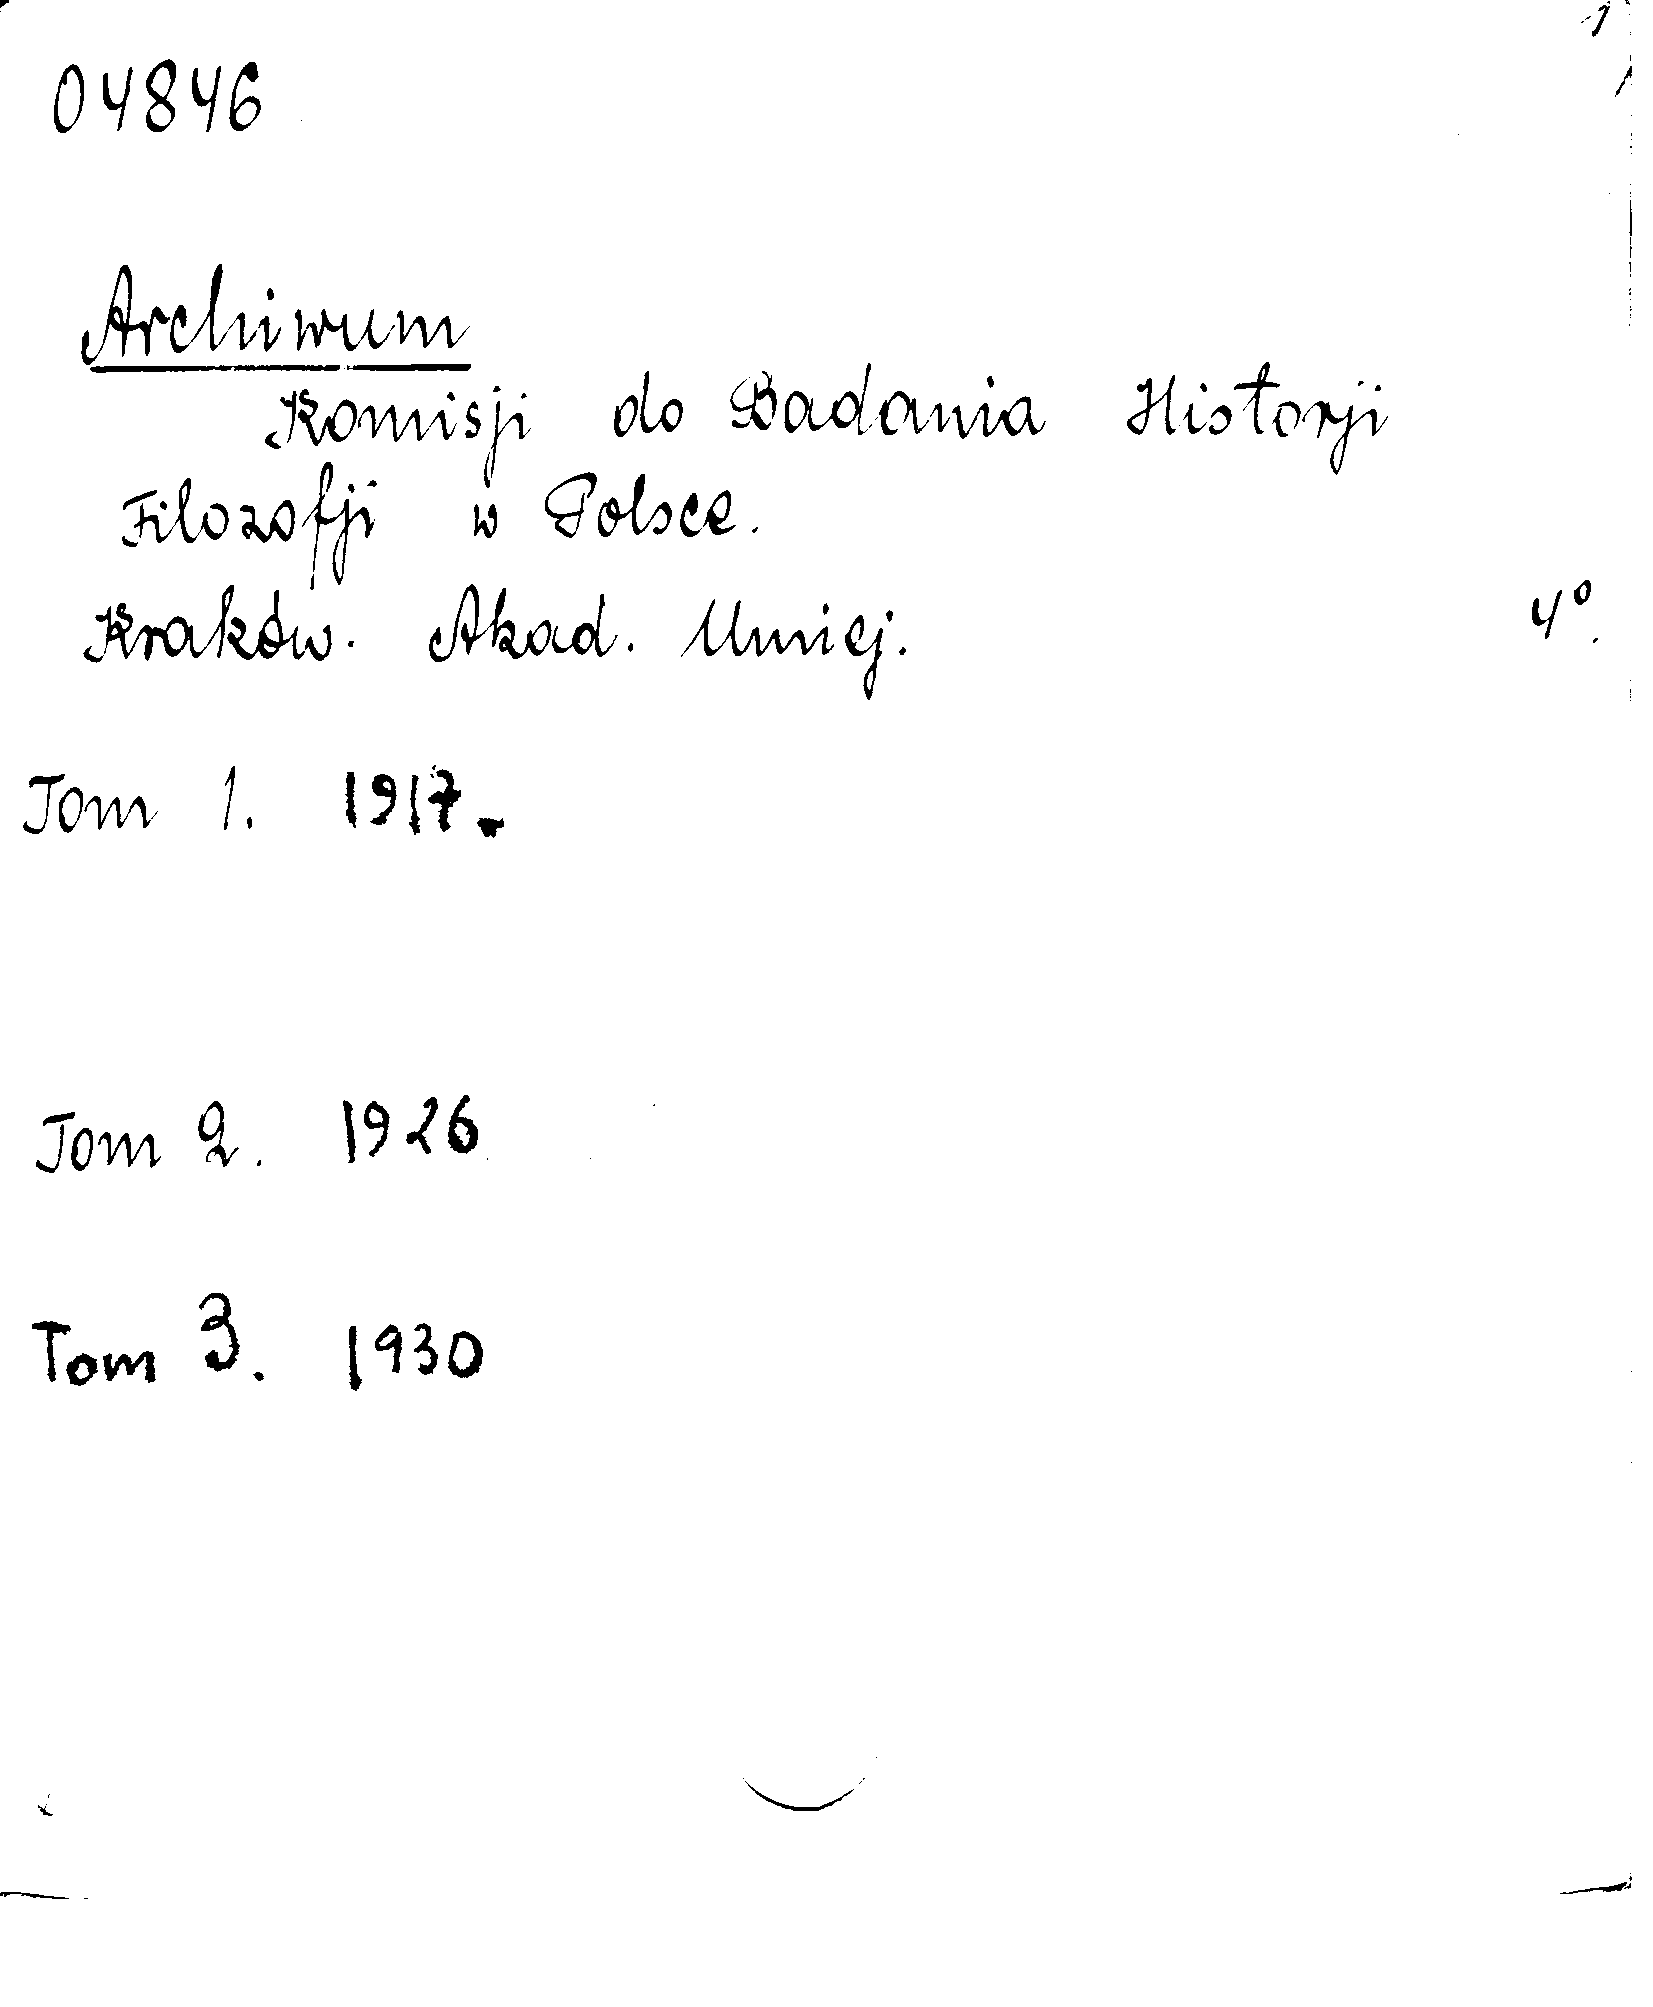 04846
Archiwum
Komisji do Badania Historji
Filozofji w Polsce.
Kraków. Akad. Umiej. 4°.
Tom 1. 1917.
Tom 2. 1926
Tom 3. 1930